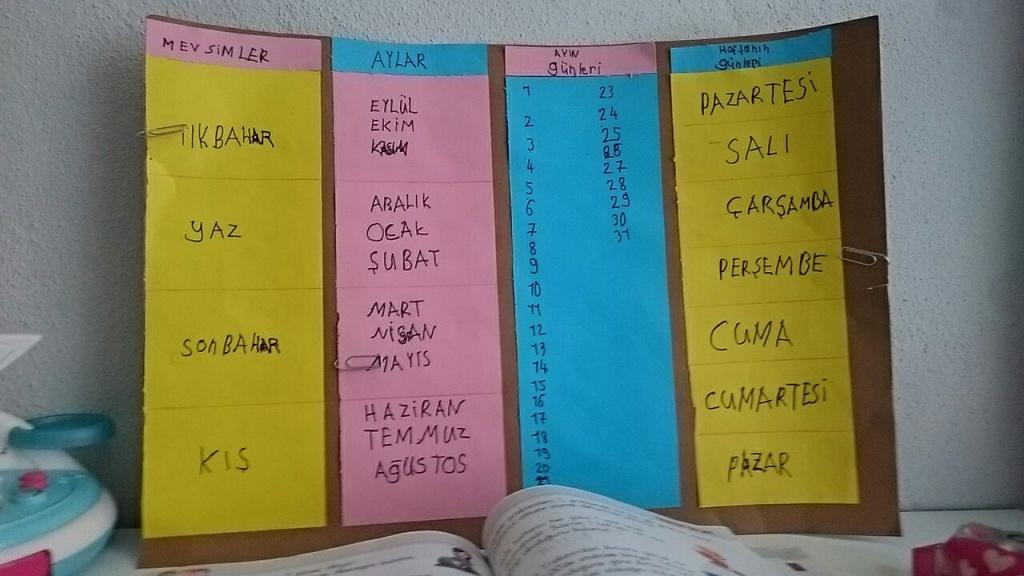 MEVSİMLER
İLKBAHAR
YAZ
SONBAHAR
KIŞ
AYLAR
EYLÜL
EKİM
KASIM
ARALIK
OCAK
ŞUBAT
MART
NİSAN
MAYIS
HAZİRAN
TEMMUZ
AĞUSTOS
AYIN
Günleri
1
2
3
4
5
6
7
8
9
10
11
12
13
14
15
16
17
18
19
20
21
23
24
25
26
27
28
29
30
31
Haftanın
günleri
PAZARTESİ
SALI
ÇARŞAMBA
PERŞEMBE
CUMA
CUMARTESİ
PAZAR